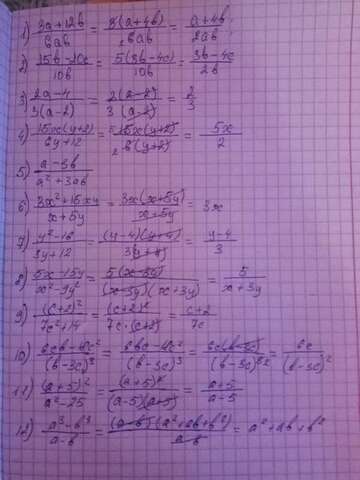 1) 3a+12b / 6ab = 3(a+4b) / 6ab = a+4b / 2ab
2) 15b-20c / 10b = 5(3b-4c) / 10b = 3b-4c / 2b
3) 2a-4 / 3(a-2) = 2(a-2) / 3(a-2) = 2 / 3
4) 15x(y+2) / 6y+12 = 15x(y+2) / 6(y+2) = 5x / 2
5) a-3b / a²+3ab
6) 3x²+15xy / x+5y = 3x(x+5y) / x+5y = 3x
7) y²-16 / 3y+12 = (y-4)(y+4) / 3(y+4) = y-4 / 3
8) 5x-15y / x²-9y² = 5(x-3y) / (x-3y)(x+3y) = 5 / x+3y
9) (c+2)² / 7c²+14 = (c+2)² / 7c·(c+2) = c+2 / 7c
10)
11) (a+5)² / a²-25 = (a+5)² / (a-5)(a+5) = a+5 / a-5
12) a³-b³ / a-b = (a-b)(a²+ab+b²) / a-b = a²+ab+b²